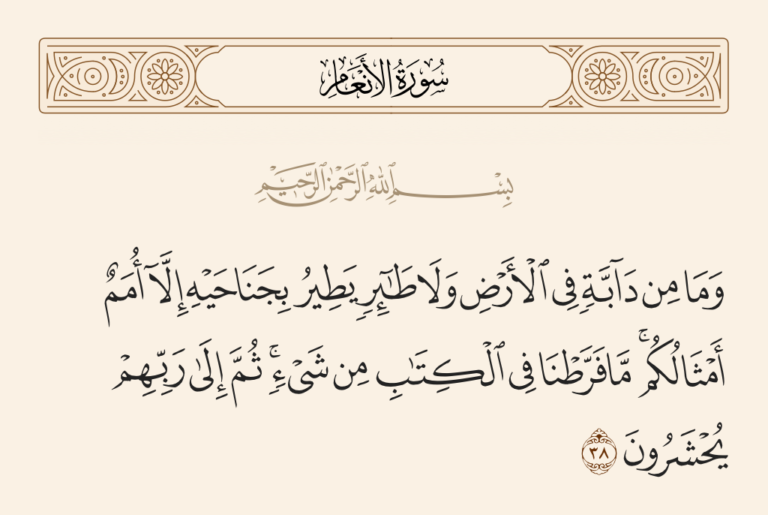 سُورَةُ الأَنْعَامِ
بِسْمِ ٱللَّهِ ٱلرَّحْمَٰنِ ٱلرَّحِيمِ
وَمَا مِن دَآبَّةٍ فِى ٱلْأَرْضِ وَلَا طَـٰٓئِرٍ يَطِيرُ بِجَنَاحَيْهِ إِلَّآ أُمَمٌ
أَمْثَالُكُم ۚ مَّا فَرَّطْنَا فِى ٱلْكِتَـٰبِ مِن شَىْءٍ ۚ ثُمَّ إِلَىٰ رَبِّهِمْ
يُحْشَرُونَ ٣٨